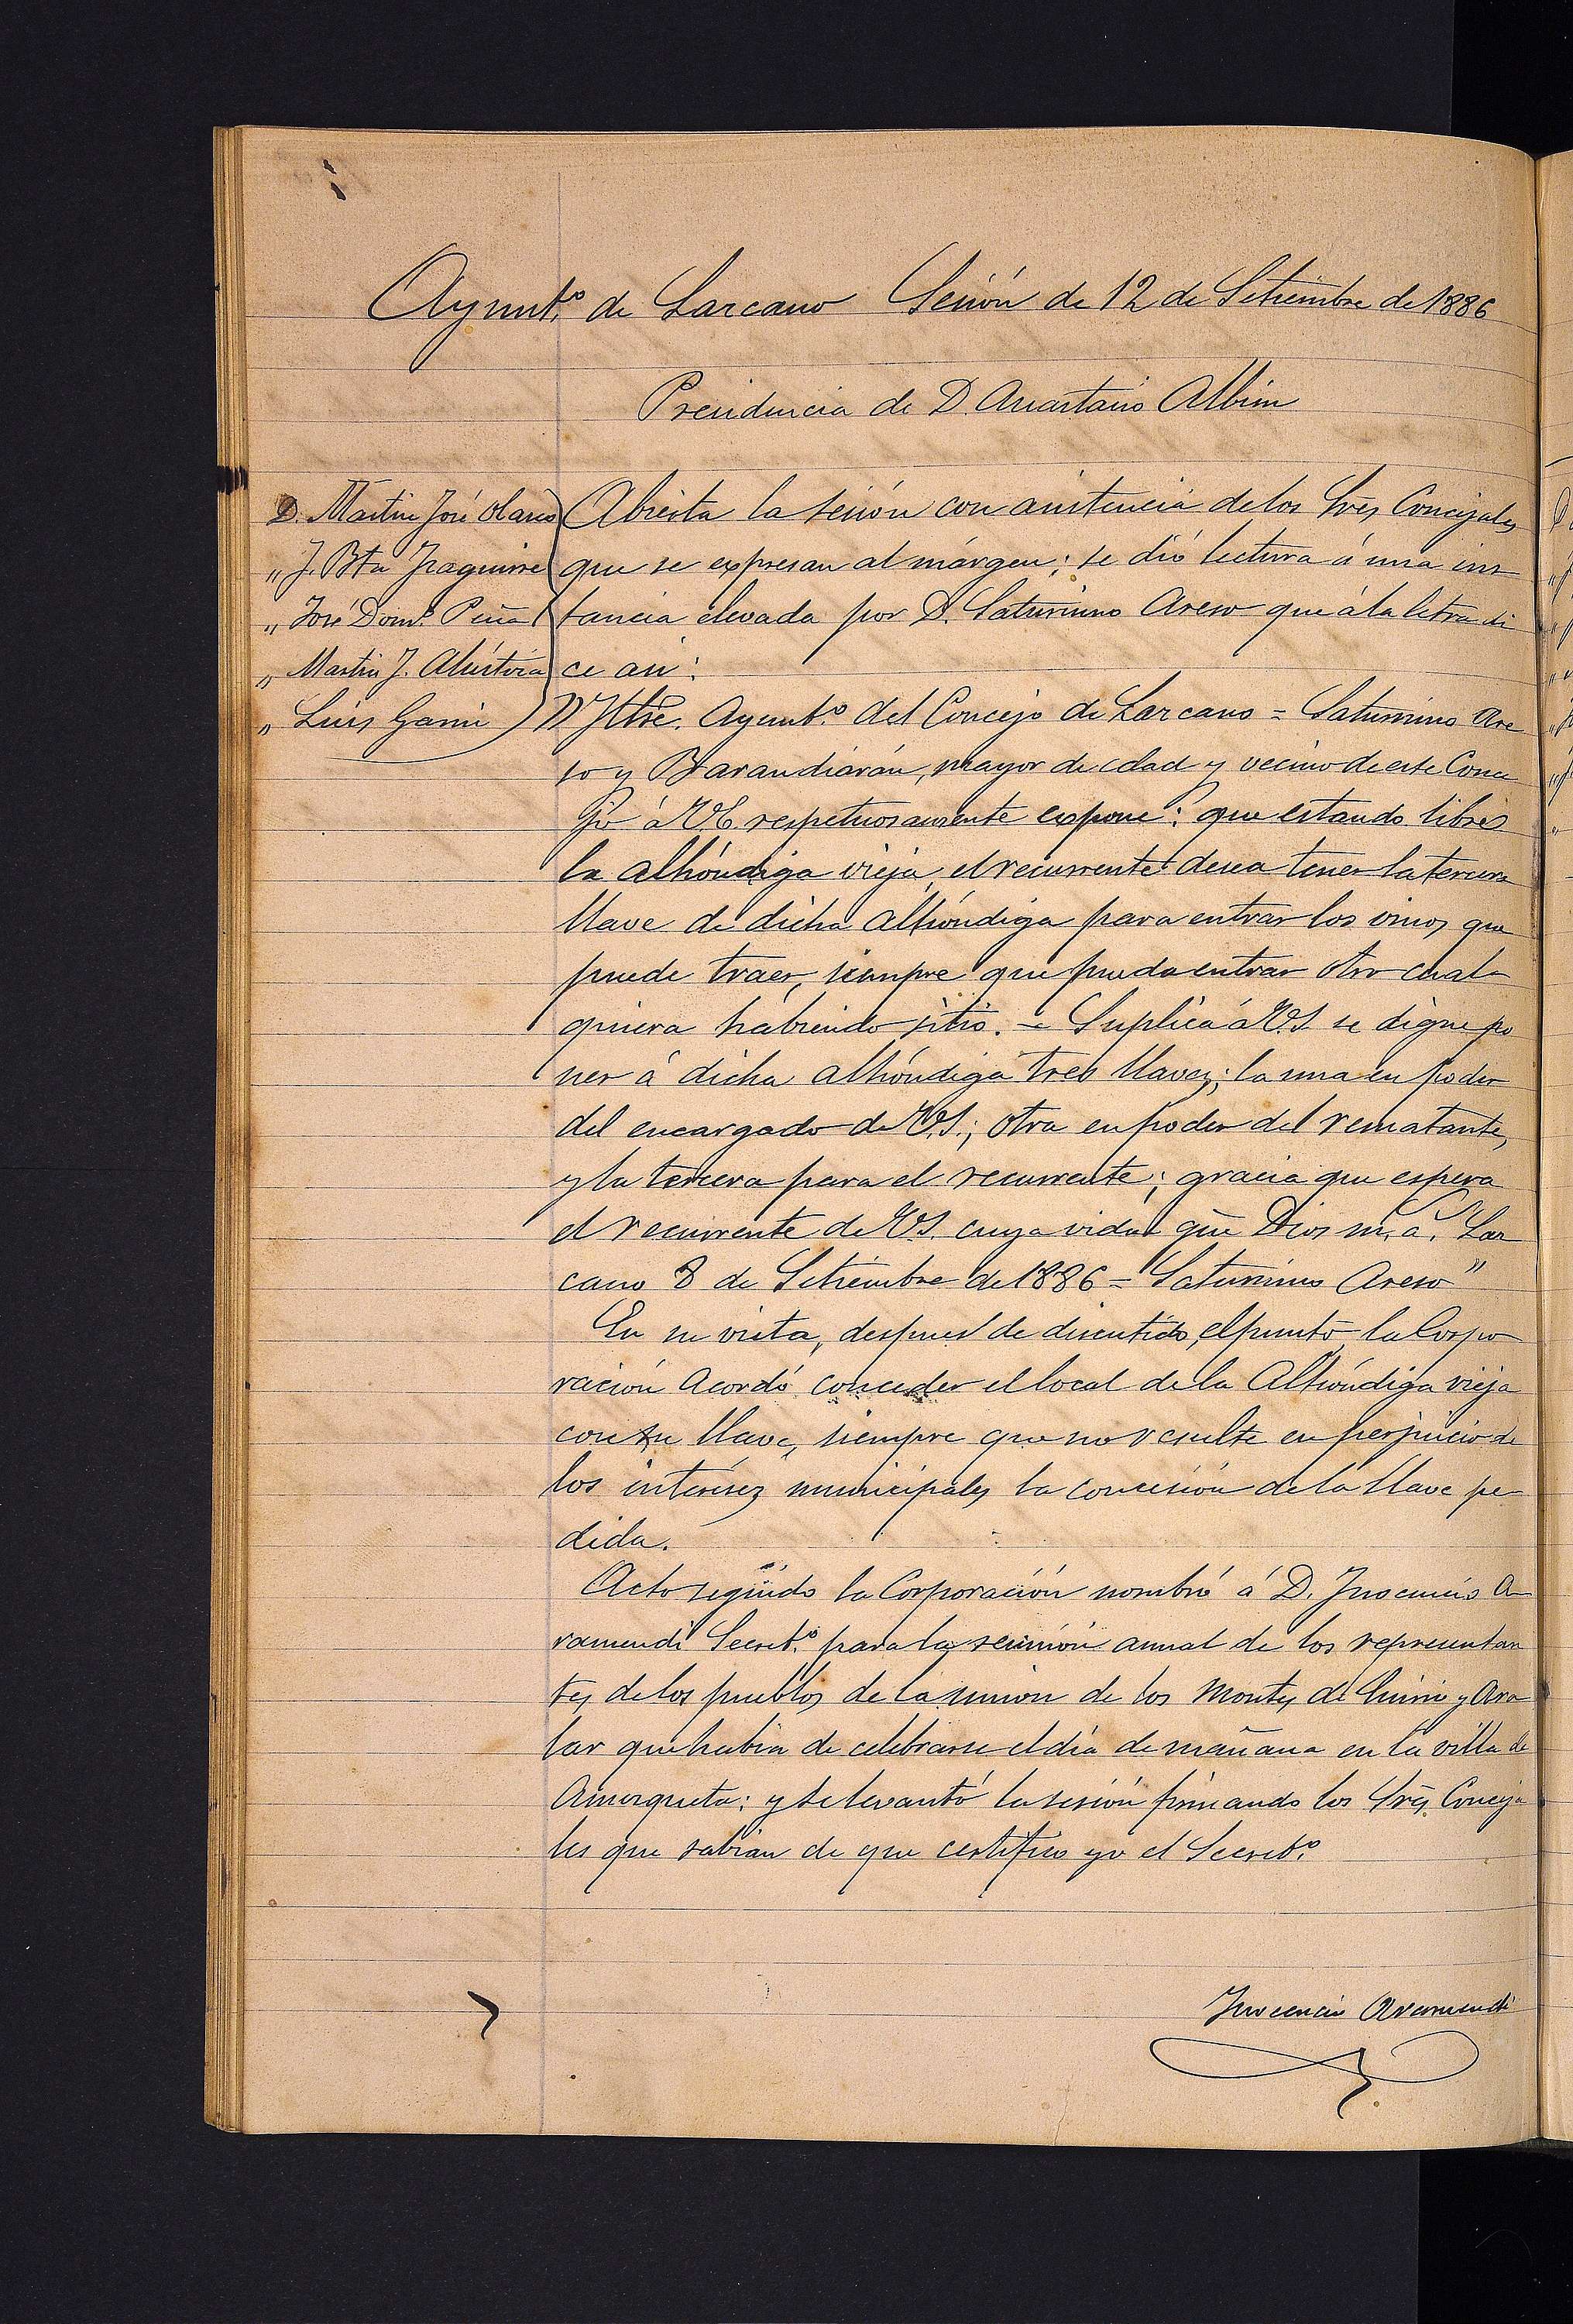 Aynmt.º de Lazcano Sesión de 12 de Setiembre de 1886
Presidencia de D. Anastasio Albin
D. Martin José Olano
" J. Bta Iraguirre
" José Dom.º Peña
" Martin J. Alustiza
" Luis Garin
Abierta la sesión con asistencia de los Srẽs Concejales
que se expresan al márgen; se dió lectura á una ins
tancia elevada por D. Saturnino Areso que á la letra di
ce asi:
"Yltrẽ. Ayumt.º del Concejo de Lazcano = Saturnino Are
so y Barandiarán, mayor de edad y vecino de este Conce
jo á V.E. respetuosamente expone: que estando libre
la alhóndiga vieja, el recurrente desea tener la tercera
llave de dicha alhóndiga para entrar los vinos que
puede traer, siempre que pueda entrar otro cual
quiera habiendo sitio. = Suplica á V.S. se digne po
ner á dicha alhóndiga tres llaves; la una en poder
del encargado de V.S.; otra en poder del rematante,
y la tercera para el recurrente; gracia que espera
el recurrente de V.S. cuya vida güe Dios m. a. Laz
cano 8 de Setiembre de 1886 = Saturnino Areso"
En su vista, despues de discutido, el punto, la Corpo
ración acordó conceder el local de la Alhóndiga vieja
con su llave, siempre que no resulte en perjuicio de
los intereses municipales la concesión de la llave pe
dida.
Acto seguido la Corporación nombró á D. Inocencio A
ramendi Secret.º para la reunión anual de los representan
tes de los pueblos de la union de los Montes de Enirio y Ara
lar que habia de celebrarse el dia de mañana en la villa de
Amezqueta: y se levantó la sesión firmando los Srẽs. Conceja
les que sabian de que certifico yo el Secret.º
Inocencio Aramendi